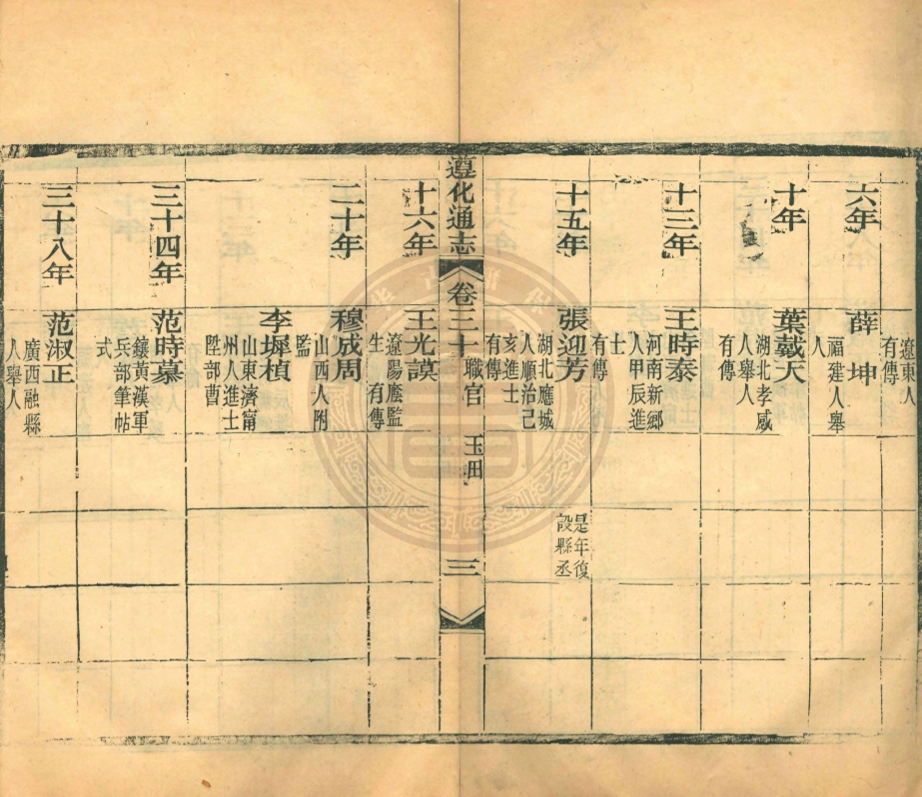 遼東人
有傳
六年
薛坤
福建人舉
人
十年
葉戴天
湖北孝感
人舉人
有傳
十三年
王時泰
河南新鄉
人甲辰進
士
有傳
十五年
張迎芳
湖北應城
人順治己
亥進士
有傳
是年復
設縣丞
遵化通志
卷三十
職官
玉田
三
十六年
王光謨
遼陽廕監
生 有傳
二十年
穆成周
山西人附
監
李墀楨
山東濟甯
州人進士
陞部曹
三十四年
范時慕
鑲黃漢軍
兵部筆帖
式
三十八年
范淑正
廣西融縣
人舉人